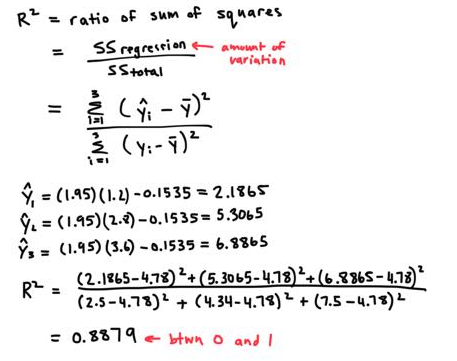 R² = ratio of sum of squares
= SS regression / SS total ← amount of variation
= 3 Σ i=1 (ŷi − ȳ)² / 3 Σ i=1 (yi − ȳ)²
Ŷ₁ = (1.95)(1.2) − 0.1535 = 2.1865
Ŷ₂ = (1.95)(2.8) − 0.1535 = 5.3065
Ŷ₃ = (1.95)(3.6) − 0.1535 = 6.8865
R² = (2.1865 − 4.78)² + (5.3065 − 4.78)² + (6.8865 − 4.78)² / (2.5 − 4.78)² + (4.34 − 4.78)² + (7.5 − 4.78)²
= 0.8879 ← btwn 0 and 1